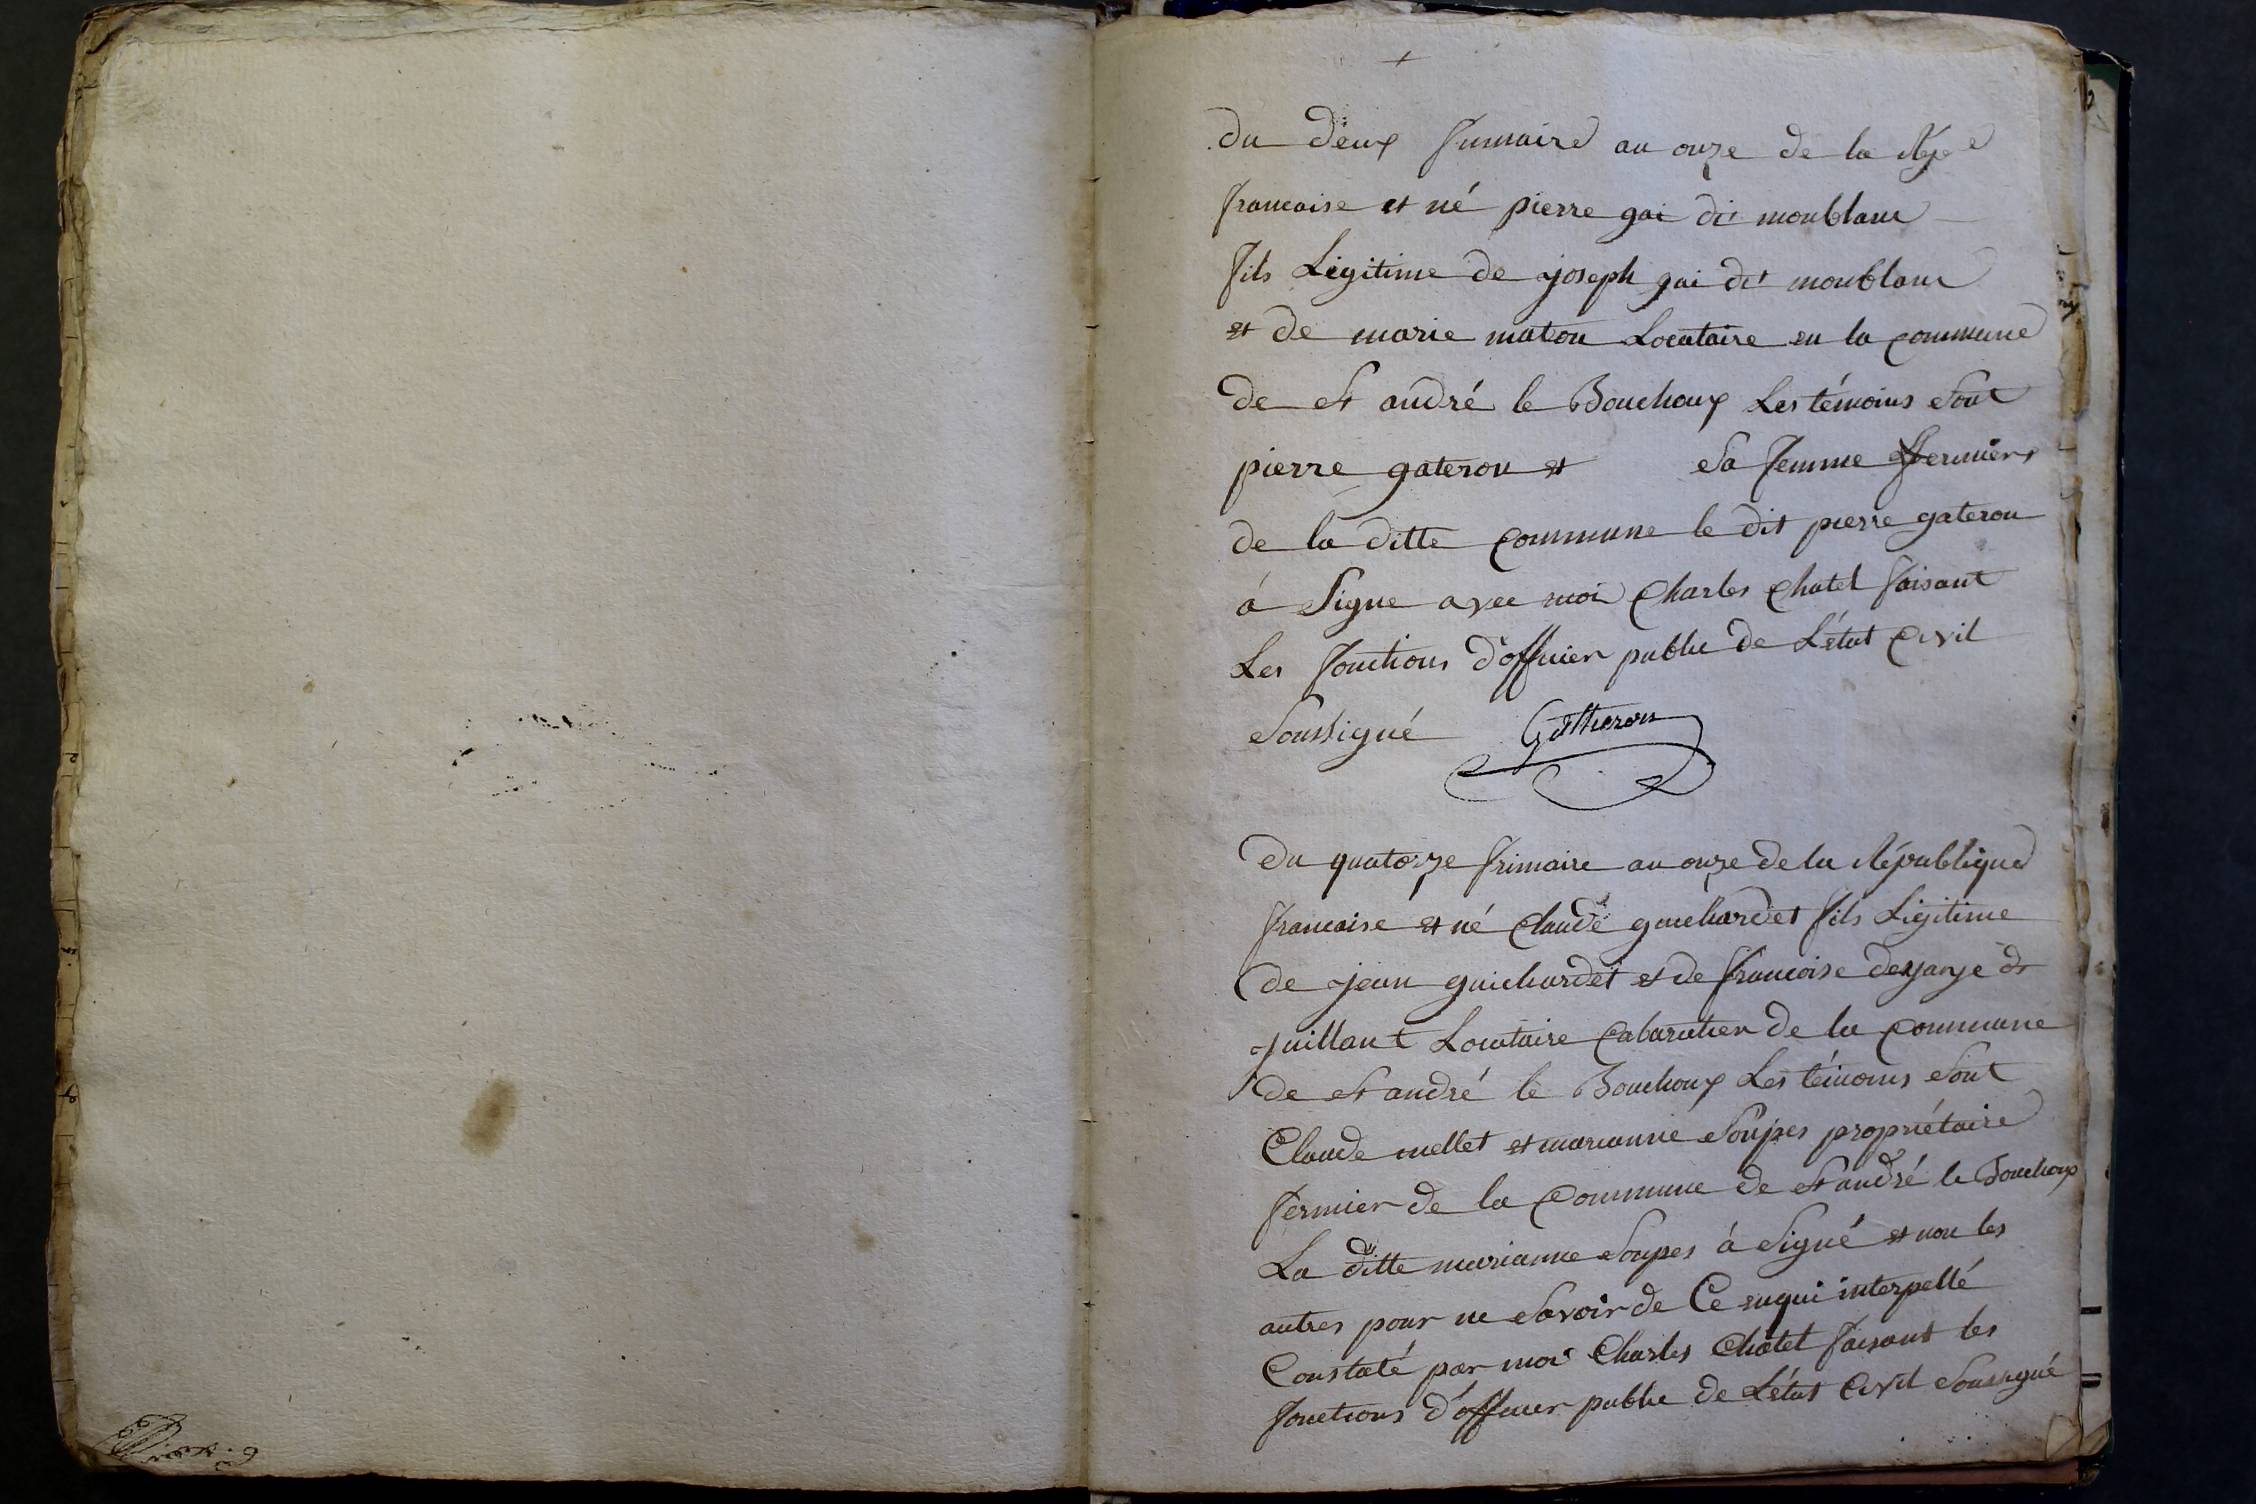 du deux frimaire an onze de la Rép e
francoise et né pierre gai dit monblanc
fils Légitime de joseph gai dit monblanc
et de marie maton Locataire en la commune
de St andré le Bouchoux Les témoins sont
pierre gateron et sa femme fermiers
de la ditte commune le dit pierre gateron
á Signe avec moi Charles Chatel faisant
Les fonctions d'officier public de L'état Civil
Soussigné Gattheron
du quatorze frimaire an onze de la République
francoise et né Claude guichardet fils Légitime
de jean guichardet et de francoise
Locataire Cabaretier de la Commune
de St andré le Bouchoux Les témoins sont
Claude mellet et marianne Soupes propriétaire
fermier de la Commune de St andré le Bouchoux
La ditte marianne Soupes á Signé et non les
autres pour ne Savoir de Ce enqui interpellé
Constaté par moi Charles Chatel faisant les
fonctions d'officier public de L'état Civil Soussigné